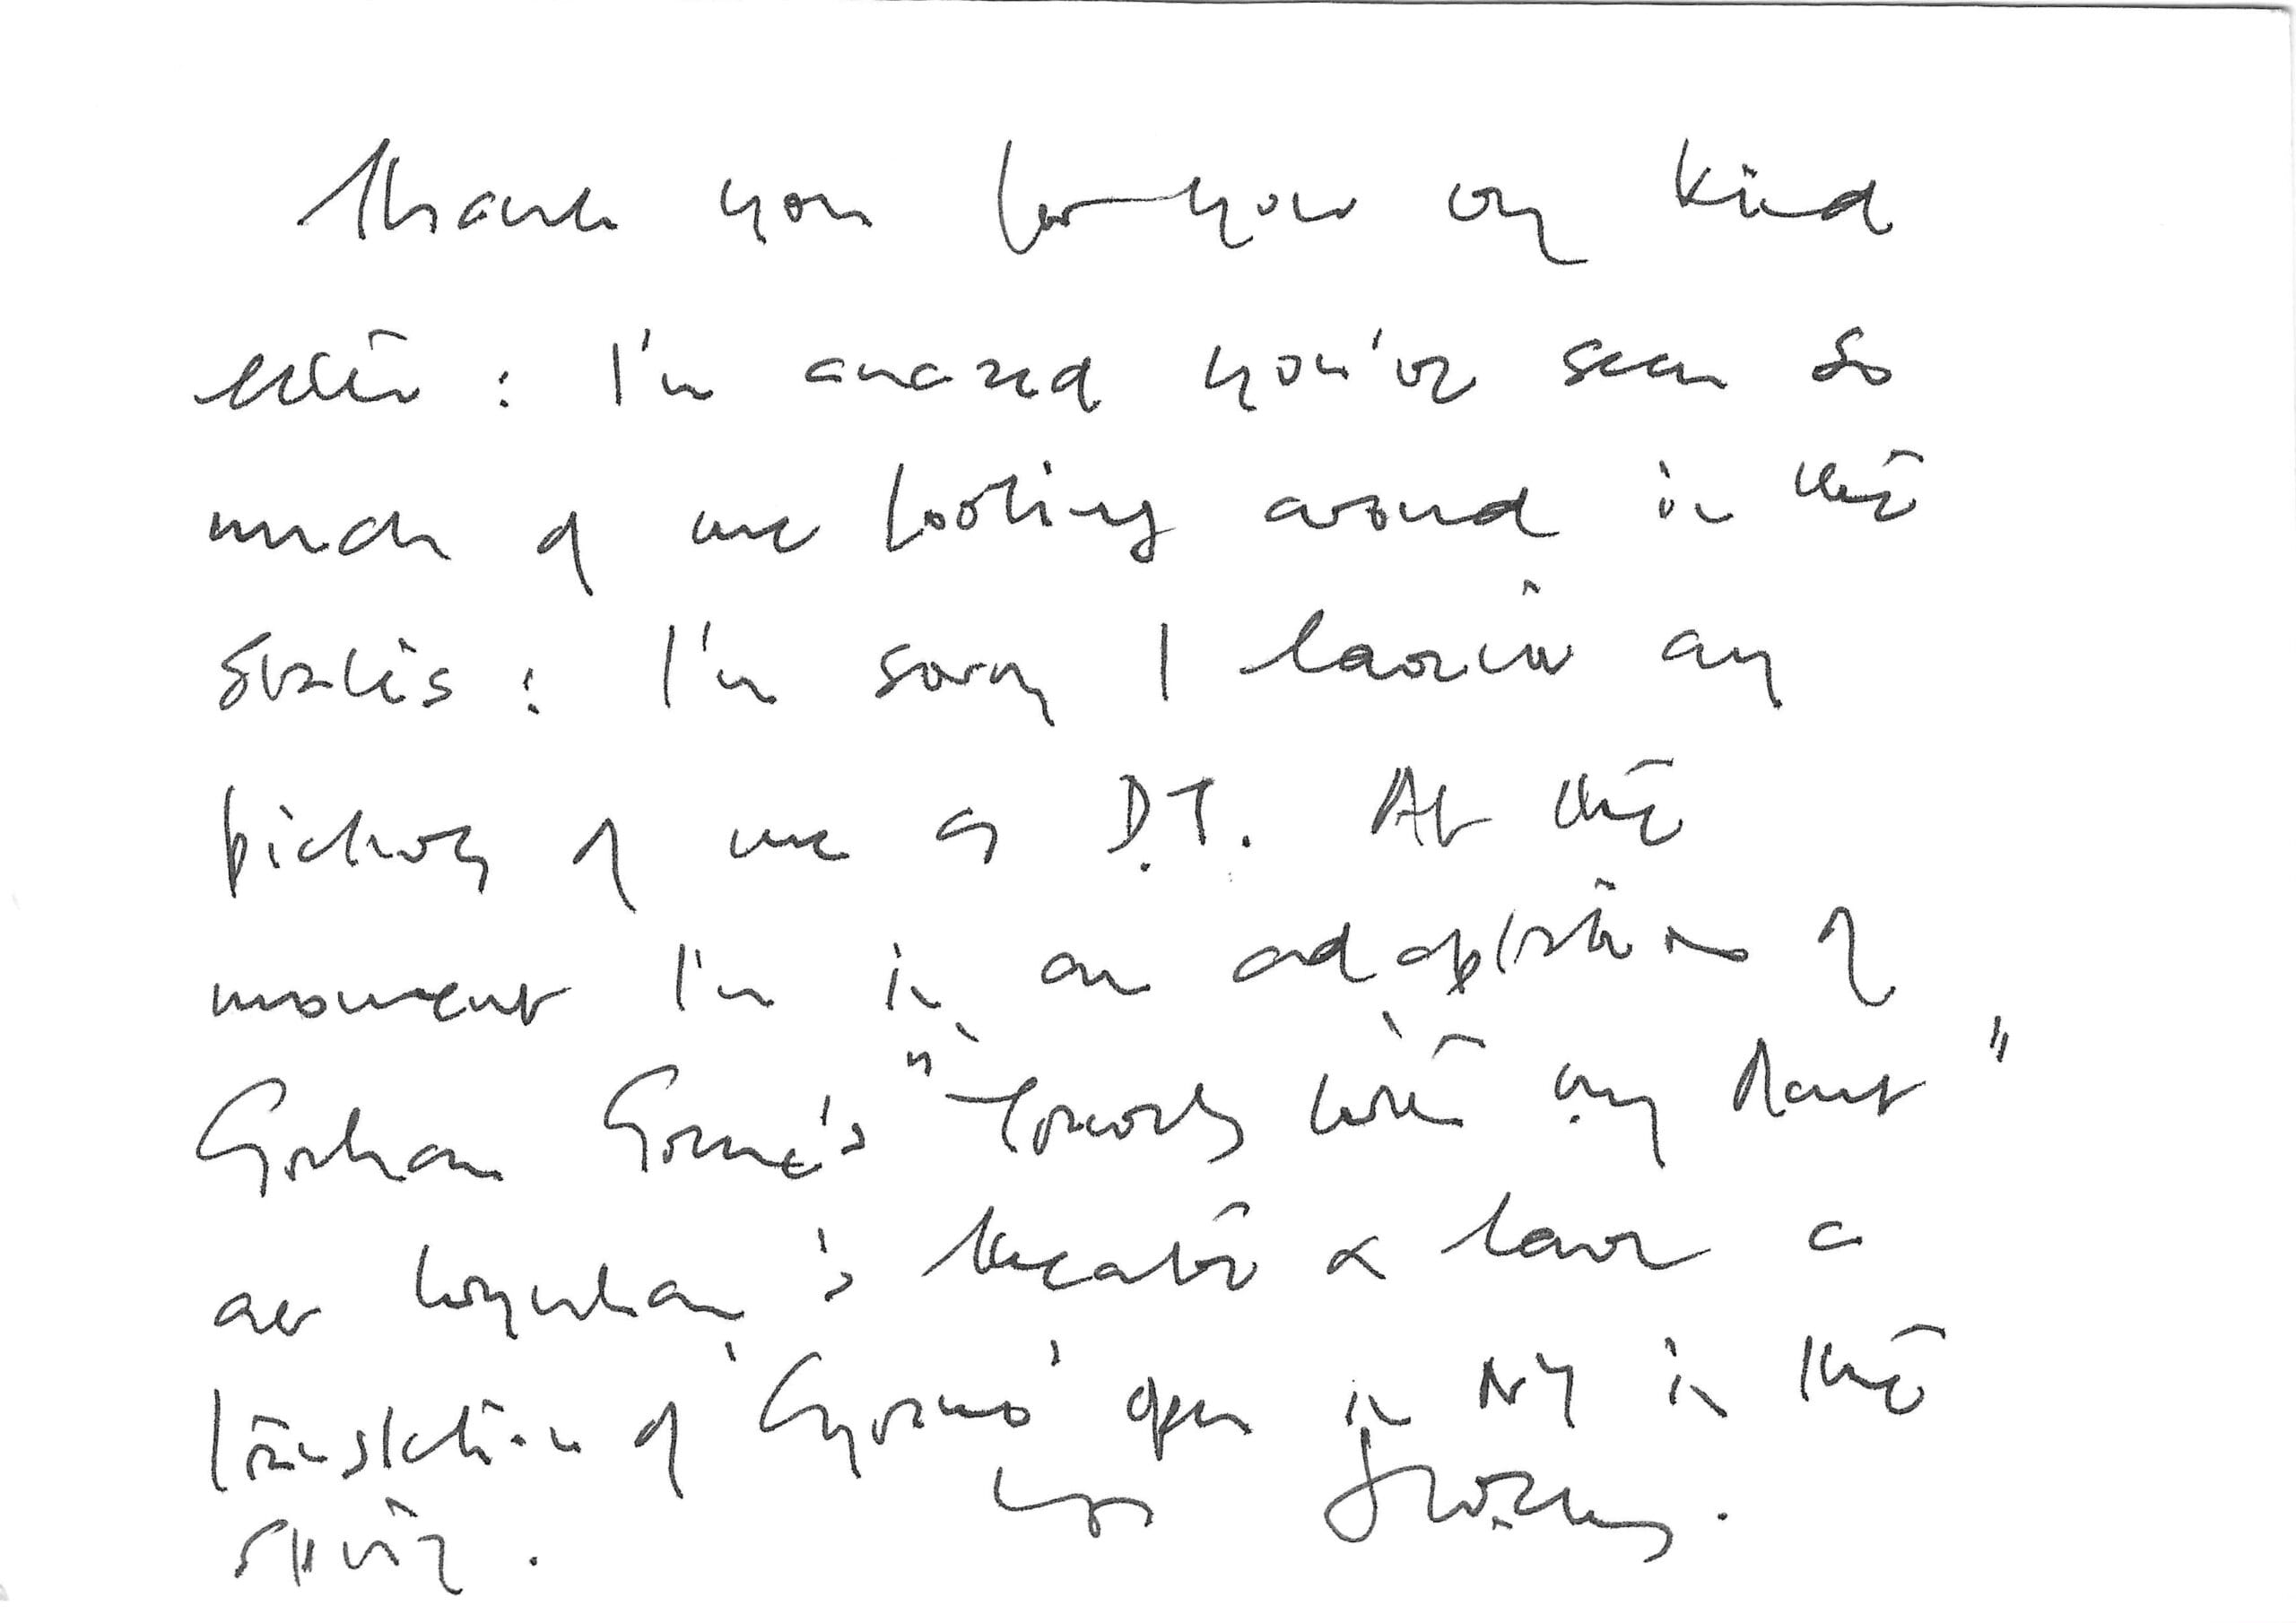 Thank you for your v. kind
letter : I'm amazed you've seen so
much of me footling around in the
States : I'm sorry I haven't any
pictures of me as D.T. At the
moment I'm in an adaptation of
Graham Greene's "Travels with my Aunt"
at Wyndham's Theatre & have a
translation of 'Cyrano' open in NY in the
Spring. Yrs